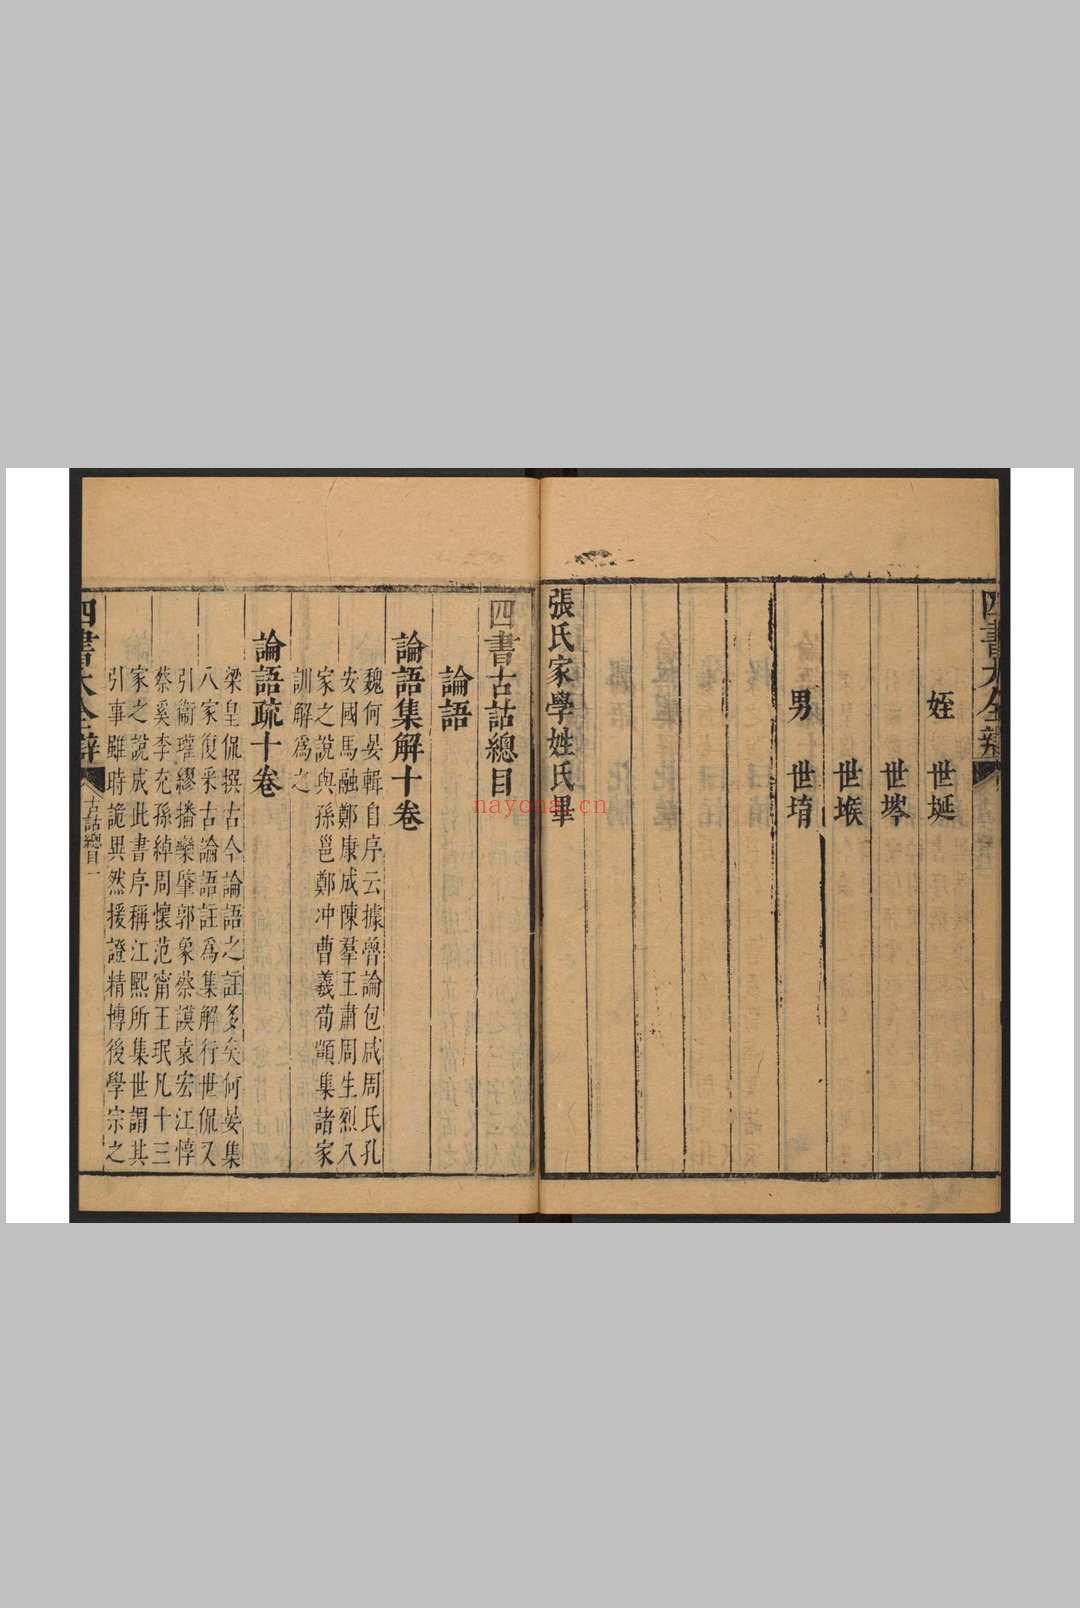 四書大全辯
姪 世埏
世埁
世堠
男 世堉
張氏家學姓氏畢
四書古詁總目
論語
論語集解十卷
魏何晏輯自序云據魯論包咸周氏孔
安國馬融鄭康成陳羣王肅周生烈八
家之說與孫邕鄭冲曹羲荀顗集諸家
訓解爲之
論語疏十卷
梁皇侃撰古今論語之註多矣何晏集
八家復采古論語註爲集解行世侃又
引衞瓘繆播欒肇郭象蔡謨袁宏江惇
蔡奚李充孫綽周懷范甯王珉凡十三
家之說成此書序稱江熙所集世謂其
引事雖時詭異然援證精博後學宗之
四書大全辯
古詁總目一
nayona.cn